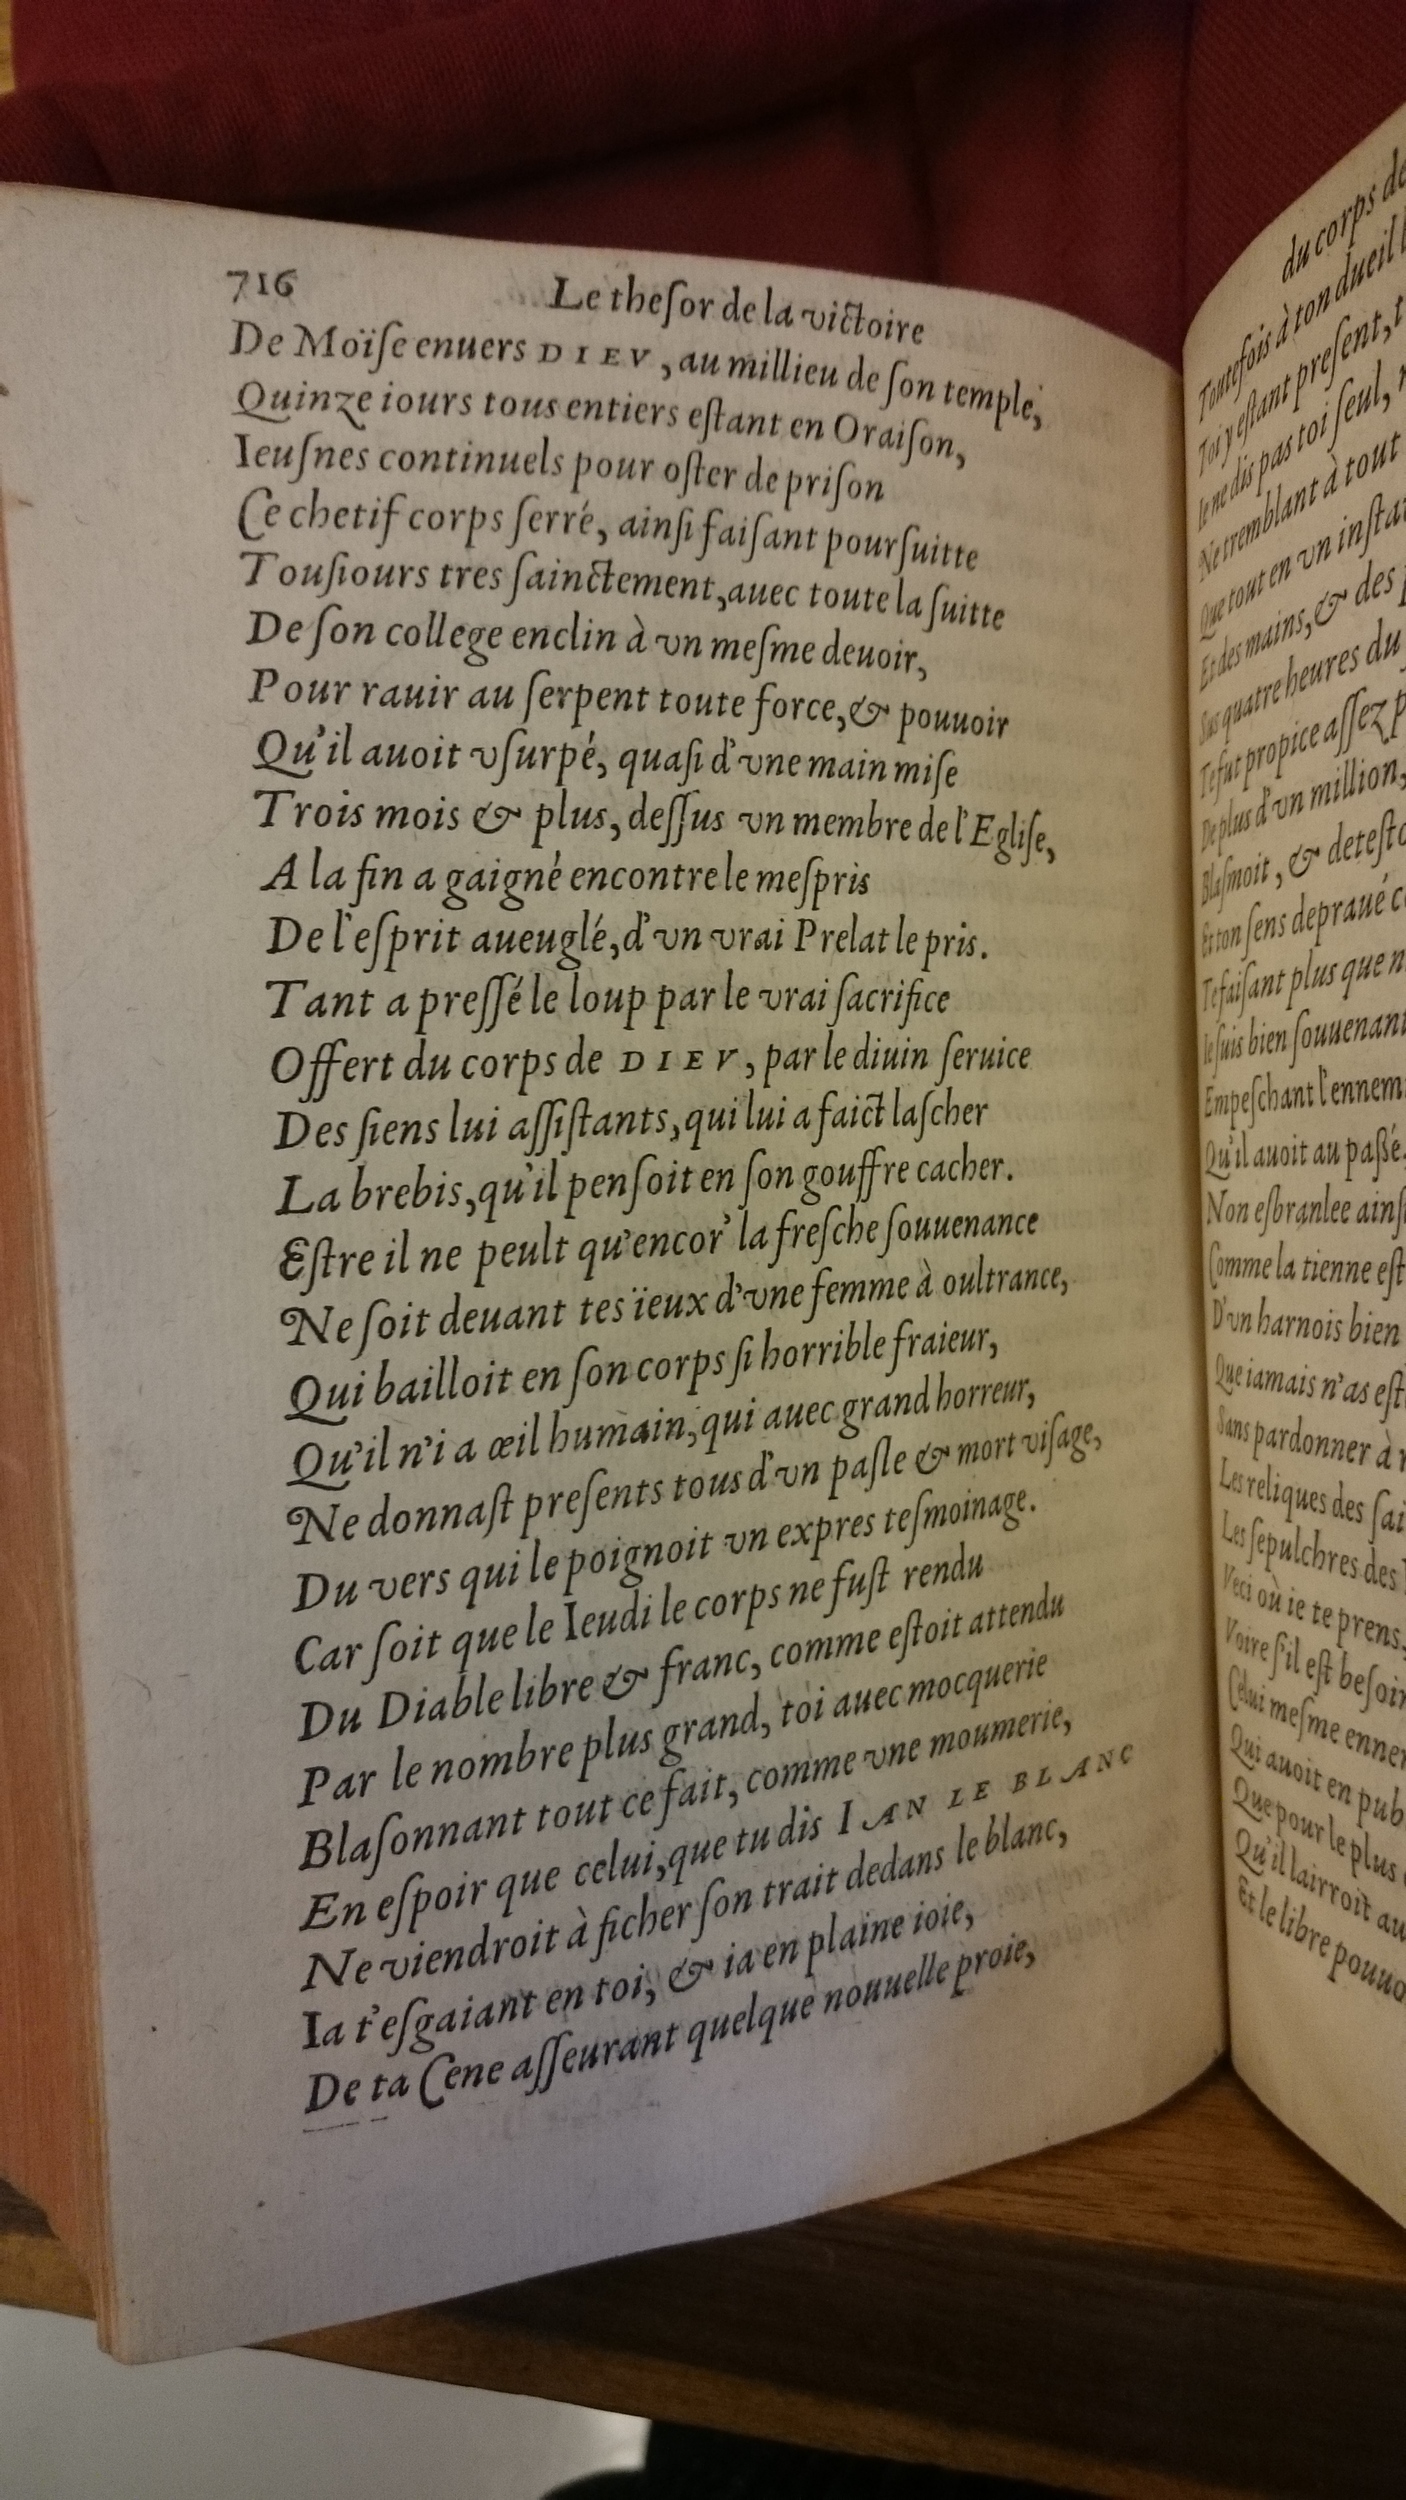 716 Le theſor de la victoire
De Moïſe enuers DIEV, au millieu de ſon temple,
Quinze iours tous entiers eſtant en Oraiſon,
Ieuſnes continuels pour oſter de priſon
Ce chetif corps ſerré, ainſi faiſant pourſuitte
Touſiours tres ſainctement, auec toute la ſuitte
De ſon college enclin à vn meſme deuoir,
Pour rauir au ſerpent toute force, & pouuoir
Qu'il auoit vſurpé, quaſi d'vne main miſe
Trois mois & plus, deſſus vn membre de l'Egliſe,
A la fin a gaigné encontre le meſpris
De l'eſprit aueuglé, d'vn vrai Prelat le pris.
Tant a preſſé le loup par le vrai ſacrifice
Offert du corps de DIEV, par le diuin ſeruice
Des ſiens lui aſſiſtants, qui lui a faict laſcher
La brebis, qu'il penſoit en ſon gouffre cacher.
Eſtre il ne peult qu'encor' la freſche ſouuenance
Ne ſoit deuant tes ïeux d'vne femme à oultrance,
Qui bailloit en ſon corps ſi horrible fraieur,
Qu'il n'i a œil humain, qui auec grand horreur,
Ne donnaſt preſents tous d'vn paſle & mort viſage,
Du vers qui le poignoit vn expres teſmoinage.
Car ſoit que le Ieudi le corps ne fuſt rendu
Du Diable libre & franc, comme eſtoit attendu
Par le nombre plus grand, toi auec mocquerie
Blaſonnant tout ce fait, comme vne moumerie,
En eſpoir que celui, que tu dis IAN LE BLANC
Ne viendroit à ficher ſon trait dedans le blanc,
Ia t'eſgaiant en toi, & ia en plaine ioie,
De ta Cene aſſeurant quelque nouuelle proie,
du corps de
Toutefois à ton dueil
Toi y eſtant preſent,
Ie ne dis pas toi ſeul,
Ne tremblant à tout
Que tout en vn
Et des mains, & des
Sus quatre heures du
Te fut propice aſſez
De plus d'vn million,
Blaſmoit, &
Et ton ſens depraué
Te faiſant plus que
Ie ſuis bien
Empeſchant
Qu'il auoit au paßé
Non eſbranlee
Comme la tienne
D'vn harnois bien
Que iamais n'as
Sans pardonner à
Les reliques des
Les ſepulchres des
Veci où ie te prens,
Voire s'il eſt
Celui meſme
Qui auoit en
Que pour le plus
Qu'il lairroit
Et le libre